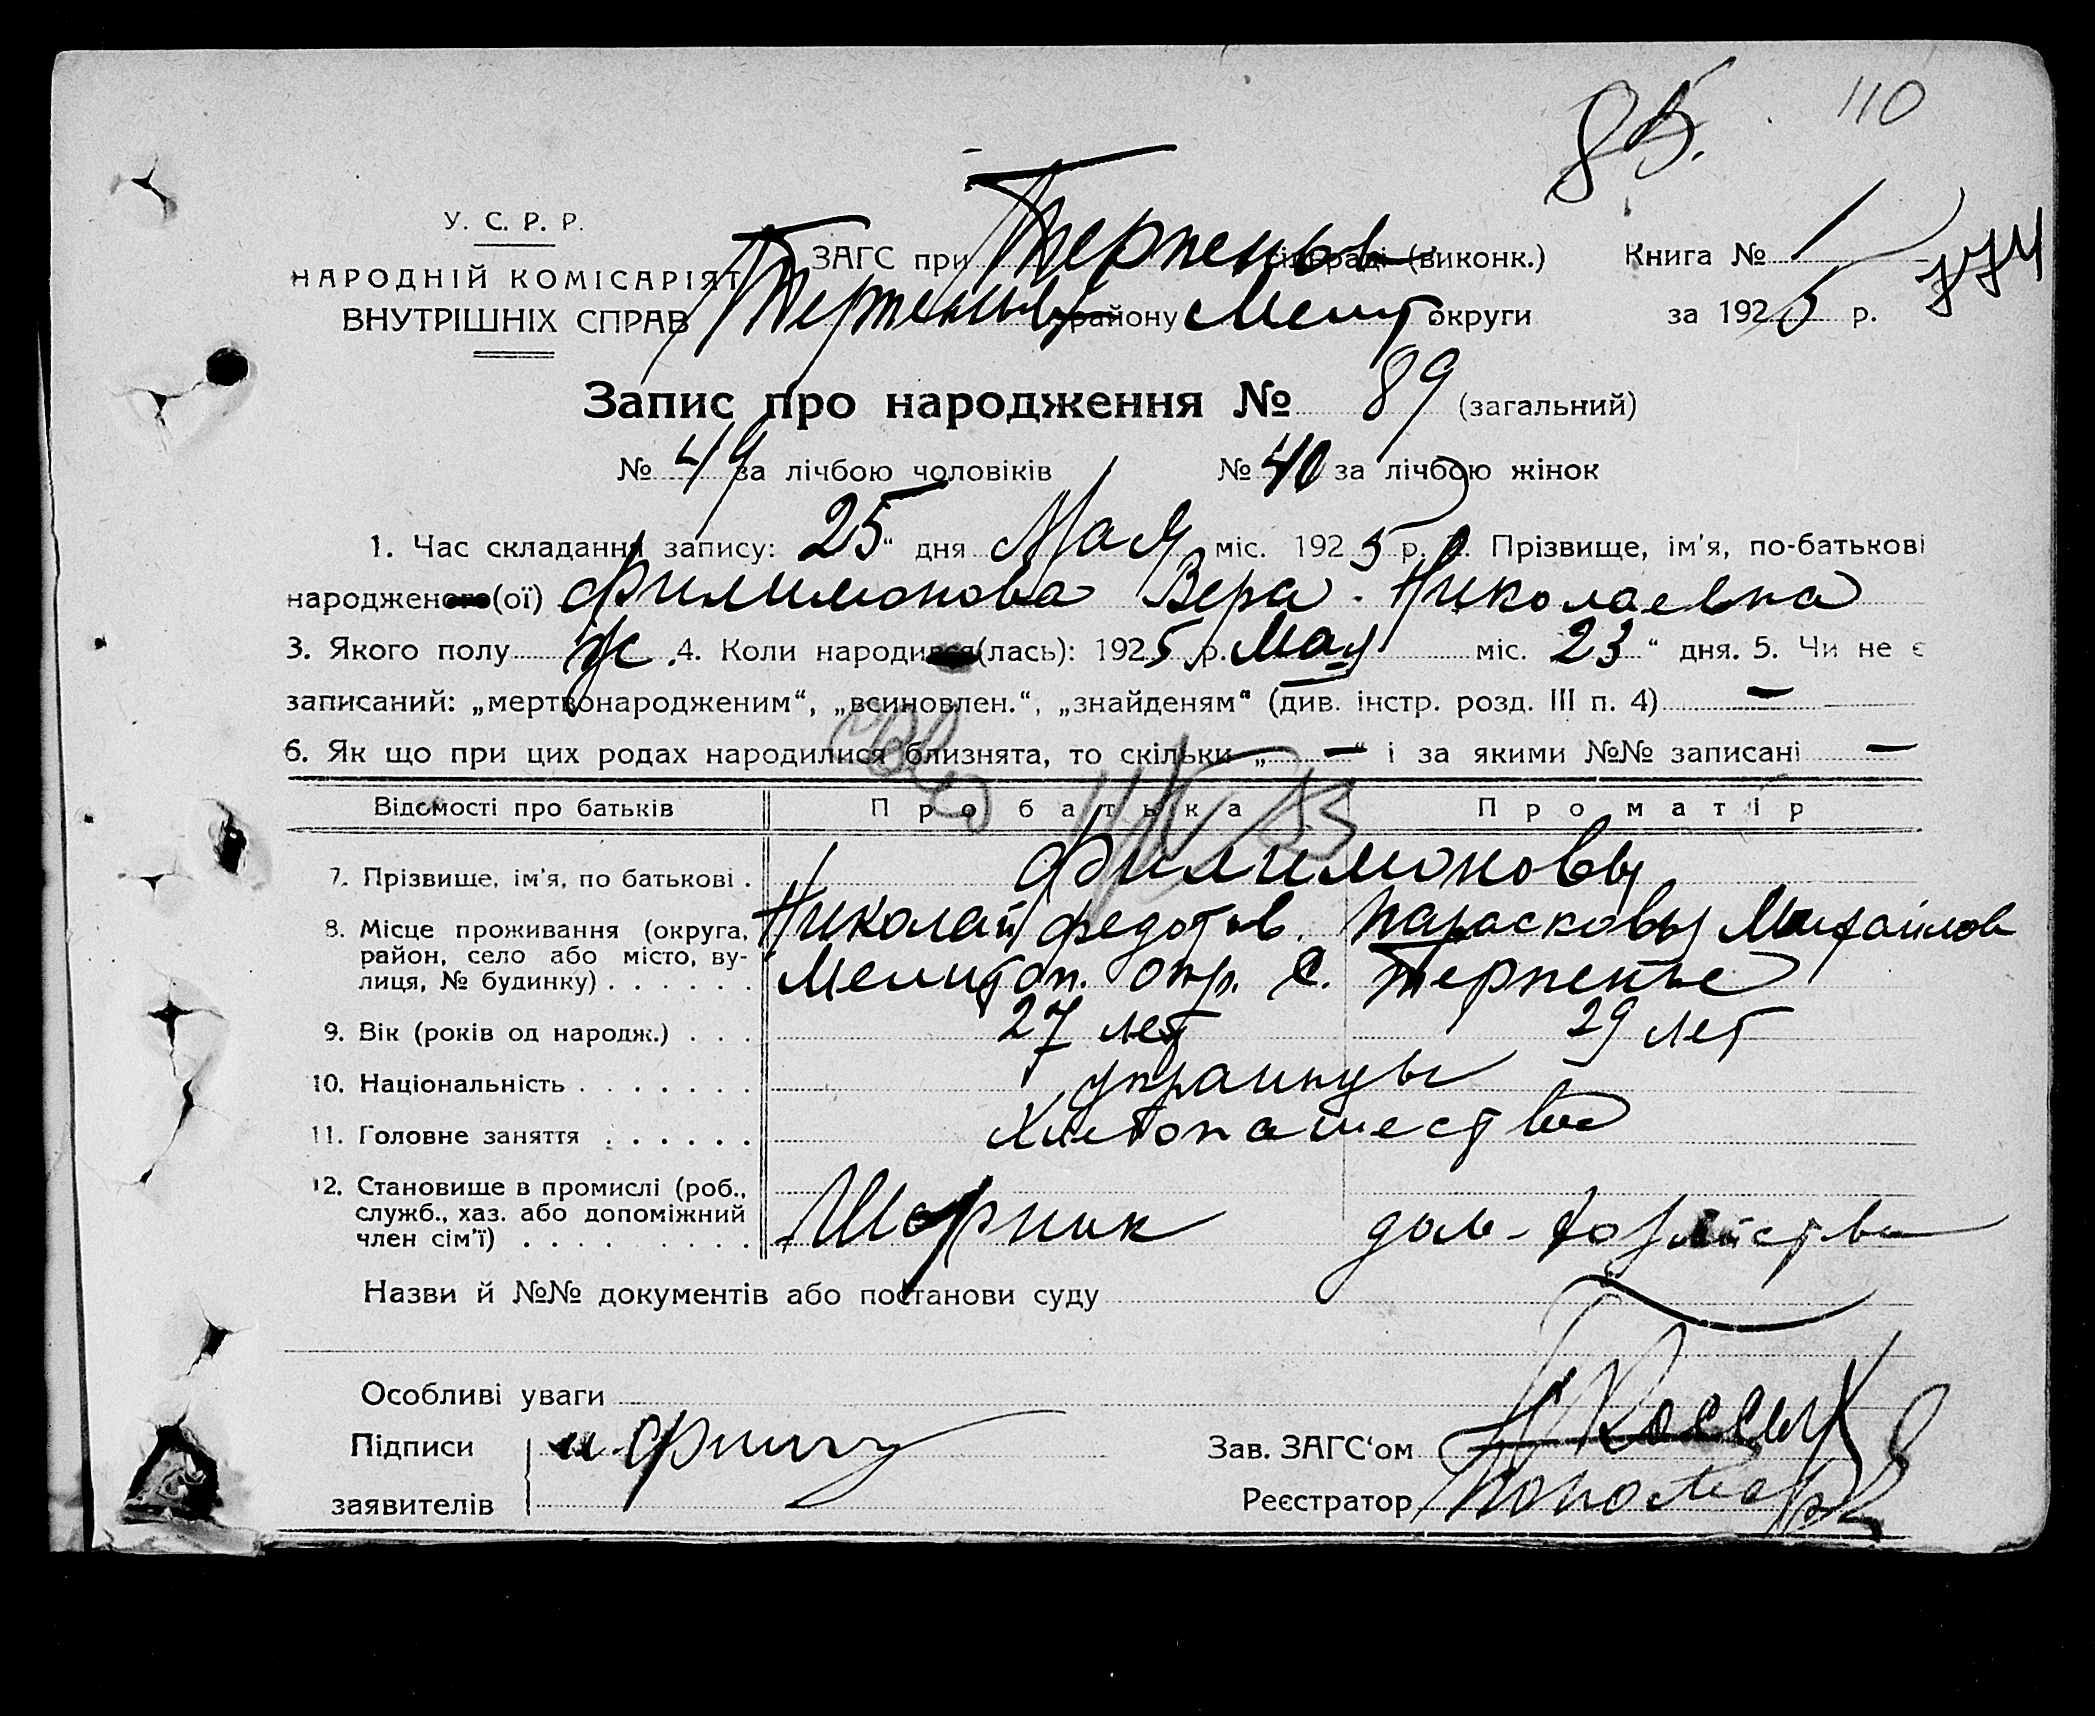 85. 110
У. С. Р. Р.
НАРОДНІЙ КОМІСАРІЯТ
ВНУТРІШНІХ СПРАВ
ЗАГС при Терпеньев сільраді (виконк.)
Терпеньев району Мелит округи
Книга № 1
774
за 1925 р.
Запис про народження № 89 (загальний)
№ 49 за лічбою чоловіків № 40 за лічбою жінок
1. Час складання запису: 25“ дня Мая міс. 1925 р. 2. Прізвище, ім’я, по-батькові
народженого(ої) Филимонова Вера Николаевна
3. Якого полу ж. 4. Коли народився(лась): 1925 р. Мая міс. 23“ дня. 5. Чи не є
записаний: „мертвонародженим“, „всиновлен.“, „знайденям“ (див. інстр. розд. III п. 4) —
6. Як що при цих родах народилися близнята, то скільки „—“ і за якими №№ записані —
Відомості про батьків Про батька Про матір
7. Прізвище, ім’я, по батькові . Филимоновы
8. Місце проживання (округа, Николай Федотов. Парасковья Михайлов
район, село або місто, ву-
лиця, № будинку) . . . . . . Мелитоп. окр. с. Терпенье
9. Вік (років од народж.) . . . 27 лет 29 лет
10. Національність . . . . . . . украинцы
11. Головне заняття . . . . . . Хлебопашество
12. Становище в промислі (роб.,
служб., хаз. або допоміжний
член сім’ї) . . . . . . . . . Шорник дом-хозяйство
Назви й №№ документів або постанови суду
Особливі уваги
Підписи
заявителів
Зав. ЗАГС‘ом
Реєстратор